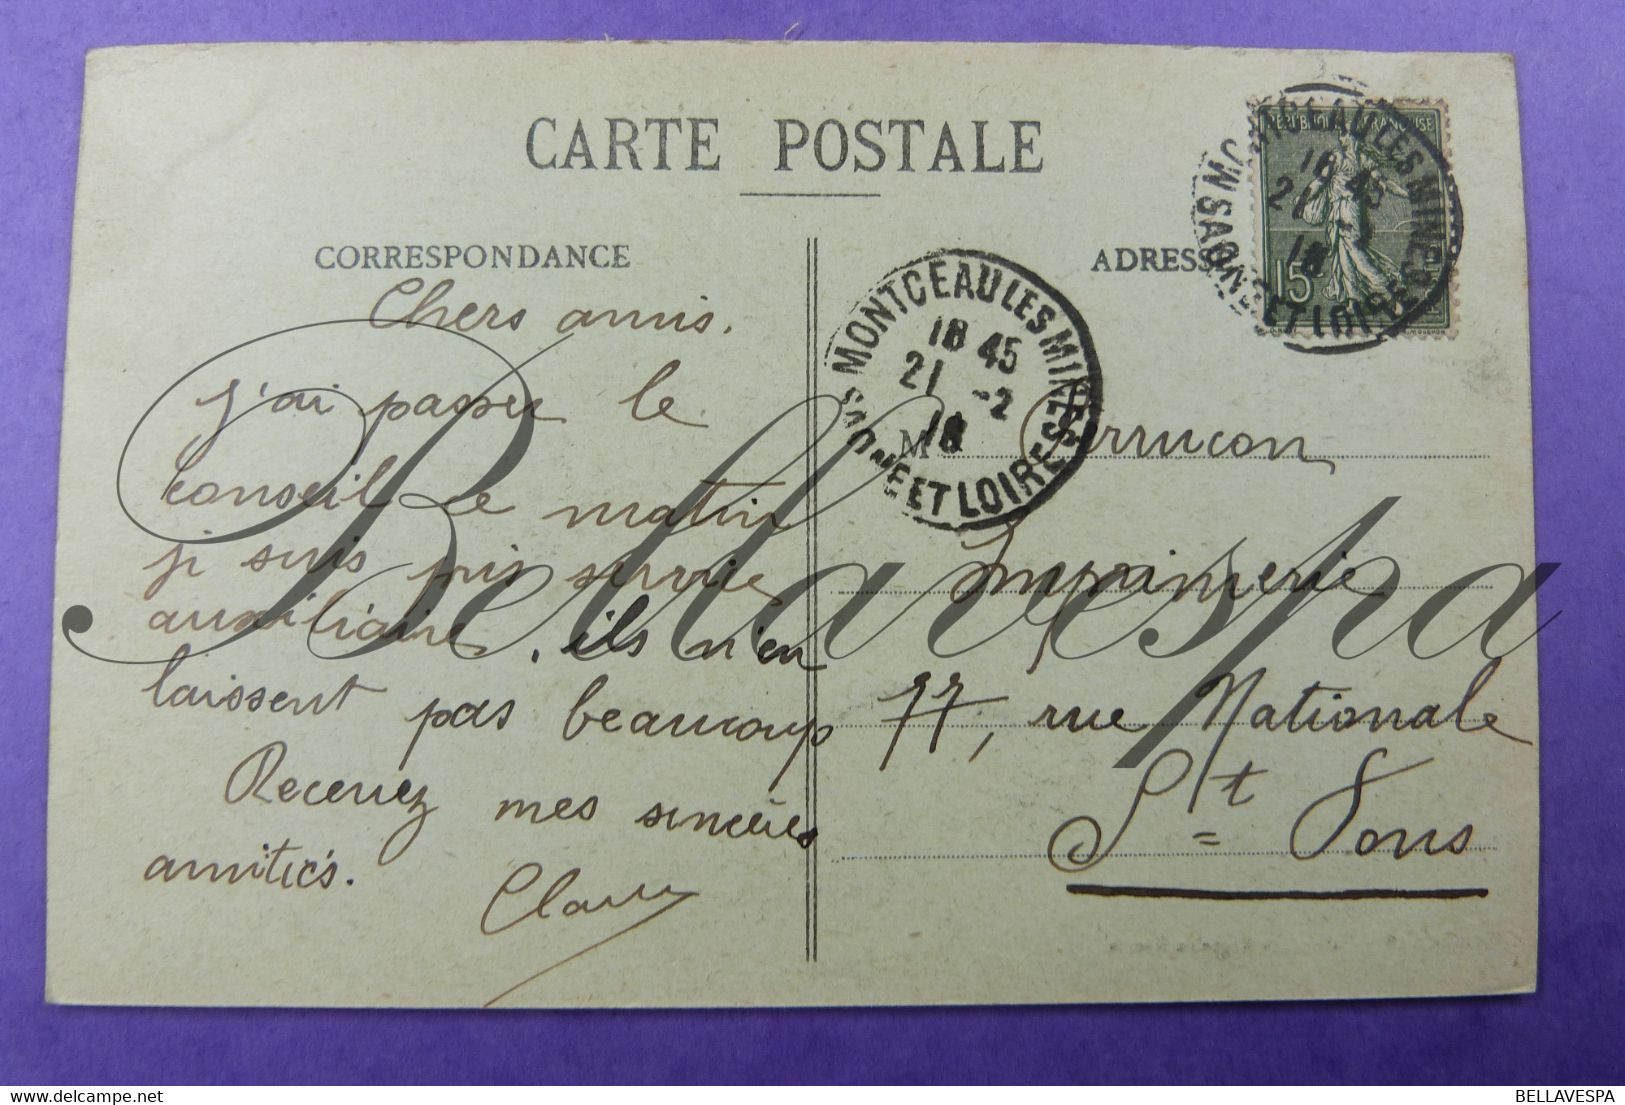 CARTE POSTALE
CORRESPONDANCE
ADRESSE
REPUBLIQUE FRANÇAISE
15
MONTCEAU LES MINES
18 45
21 -2
18
SAONE ET LOIRE
MONTCEAU LES MINES
18 45
21 -2
18
SAONE ET LOIRE
Chers amis.
j'ai passer le
conseil ce matin
je suis pris service
auxiliaire, ils n'en
laissent pas beaucoup
Recevez mes sincères
amitiés.
M
Imprimerie
77, rue Nationale
St Fons
Bellavespa
BELLAVESPA